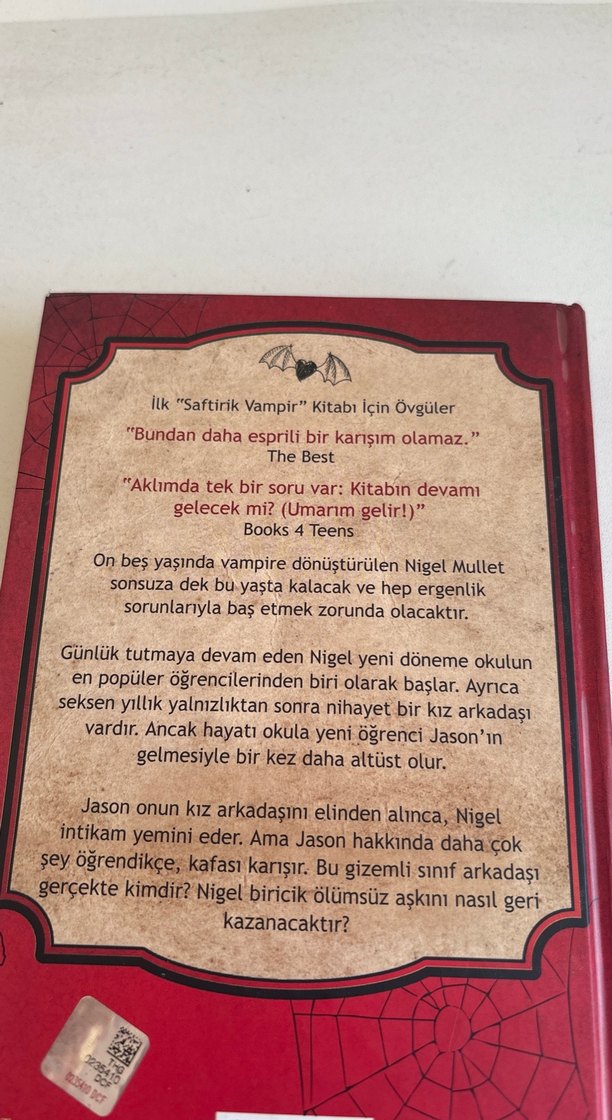 İlk "Saftirik Vampir" Kitabı İçin Övgüler
"Bundan daha esprili bir karışım olamaz."
The Best
"Aklımda tek bir soru var: Kitabın devamı
gelecek mi? (Umarım gelir!)"
Books 4 Teens
On beş yaşında vampire dönüştürülen Nigel Mullet
sonsuza dek bu yaşta kalacak ve hep ergenlik
sorunlarıyla baş etmek zorunda olacaktır.
Günlük tutmaya devam eden Nigel yeni döneme okulun
en popüler öğrencilerinden biri olarak başlar. Ayrıca
seksen yıllık yalnızlıktan sonra nihayet bir kız arkadaşı
vardır. Ancak hayatı okula yeni öğrenci Jason'ın
gelmesiyle bir kez daha altüst olur.
Jason onun kız arkadaşını elinden alınca, Nigel
intikam yemini eder. Ama Jason hakkında daha çok
şey öğrendikçe, kafası karışır. Bu gizemli sınıf arkadaşı
gerçekte kimdir? Nigel biricik ölümsüz aşkını nasıl geri
kazanacaktır?
THG
0235410
DCF
0235410 DCF